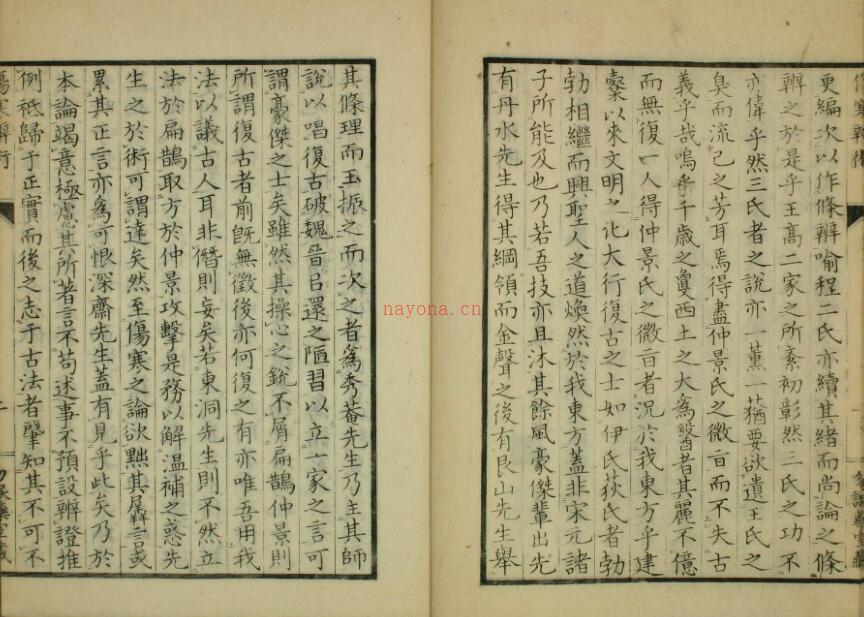 更編次以作條辨喻程二氏亦續其緒而尚論之條
辨之於是乎王高二家之所紊初彰然三氏之功不
亦偉乎然三氏者之說亦一薰一蕕要欲遺王氏之
臭而流己之芳耳焉得盡仲景氏之微旨而不失古
義乎哉嗚乎千歲之夐西土之大為醫者其麗不億
而無復一人得仲景氏之微旨者況於我東方乎建
櫜以來文明之化大行復古之士如伊氏荻氏者勃
勃相繼而興聖人之道煥然於我東方蓋非宋元諸
子所能及也乃若吾技亦且沐其餘風豪傑輩出先
有丹水先生得其綱領而金聲之後有艮山先生舉
其條理而玉振之而次之者為秀菴先生乃主其師
說以唱復古破魏晉呂還之陋習以立一家之言可
謂豪傑之士矣雖然其操心之銳不屑扁鵲仲景則
所謂復古者前既無徵後亦何復之有亦唯吾用我
法以議古人耳非僭則妄矣若東洞先生則不然立
法於扁鵲取方於仲景攻擊是務以解溫補之惑先
生之於術可謂達矣然至傷寒之論欲黜其羼言或
累其正言亦為可恨深齋先生蓋有見乎此矣乃於
本論竭意極慮其所著言不苟述事不預設辨證推
例秪歸于正實而後之志于古法者肇知其不可不
nayona.cn